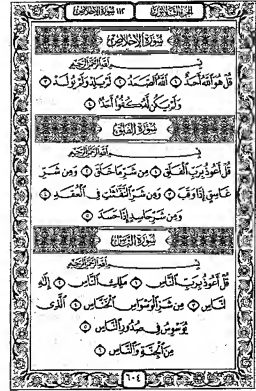 الجزء الثلاثون سورة الإخلاص ١١٢
سورة الإخلاص
بسم الله الرحمن الرحيم
قُلْ هُوَ اللَّهُ أَحَدٌ ١ اللَّهُ الصَّمَدُ ٢ لَمْ يَلِدْ وَلَمْ يُولَدْ ٣
وَلَمْ يَكُن لَّهُ كُفُوًا أَحَدٌ ٤
سورة الفلق
بسم الله الرحمن الرحيم
قُلْ أَعُوذُ بِرَبِّ الْفَلَقِ ١ مِن شَرِّ مَا خَلَقَ ٢ وَمِن شَرِّ
غَاسِقٍ إِذَا وَقَبَ ٣ وَمِن شَرِّ النَّفَّٰثَٰتِ فِي الْعُقَدِ ٤
وَمِن شَرِّ حَاسِدٍ إِذَا حَسَدَ ٥
سورة الناس
بسم الله الرحمن الرحيم
قُلْ أَعُوذُ بِرَبِّ النَّاسِ ١ مَلِكِ النَّاسِ ٢ إِلَٰهِ
النَّاسِ ٣ مِن شَرِّ الْوَسْوَاسِ الْخَنَّاسِ ٤ الَّذِي
يُوَسْوِسُ فِي صُدُورِ النَّاسِ ٥
مِنَ الْجِنَّةِ وَالنَّاسِ ٦
٦٠٤